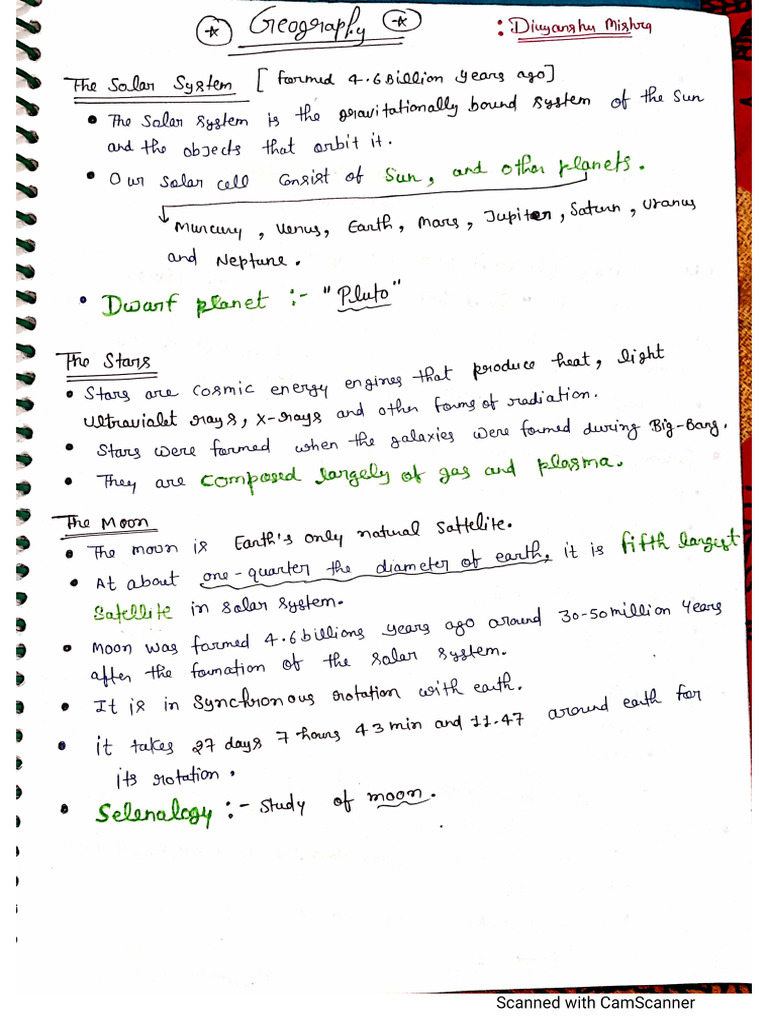 Geography
: Divyanshu Mishra
The Solar System [formed 4.6 Billion years ago]
• The Solar System is the gravitationally bound system of the Sun
and the objects that orbit it.
• Our solar cell consist of Sun, and other planets.
Murcury, Venus, Earth, Mars, Jupiter, Saturn, Uranus
and Neptune.
• Dwarf planet :- "Pluto"
The Stars
• Stars are cosmic energy engines that produce heat, light
ultraviolet rays, x-rays and other forms of radiation.
• Stars were formed when the galaxies were formed during Big-Bang.
• They are composed largely of gas and plasma.
The Moon
• The moon is Earth's only natural Sattelite.
• At about one-quarter the diameter of earth, it is fifth largest
Satellite in solar system.
• Moon was formed 4.6 billions years ago around 30-50 million years
after the formation of the solar system.
• It is in Synchronous rotation with earth.
• it takes 27 days 7 hours 43 min and 11.47 around earth for
its rotation.
• Selenology :- study of moon.
Scanned with CamScanner